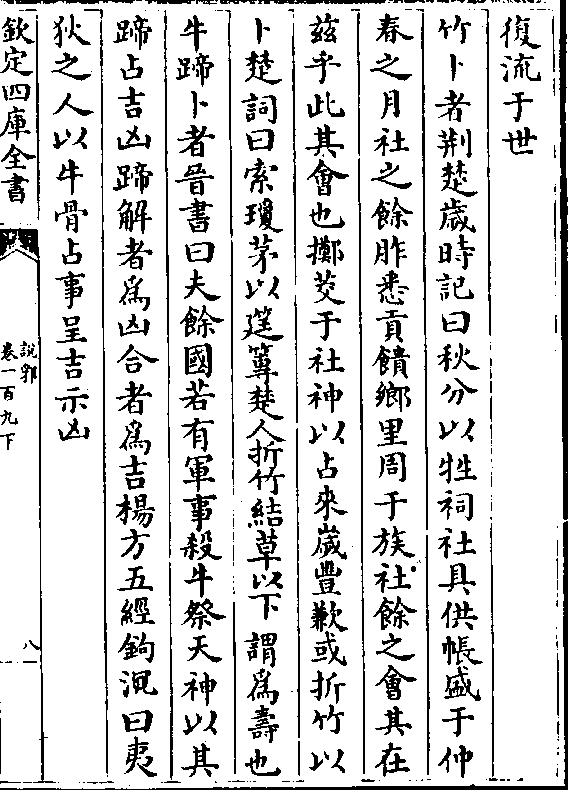 復流于世
竹卜者荆楚歲時記曰秋分以牲祠社具供帳盛于仲
春之月社之餘胙悉貢饋鄉里周于族社餘之會其在
兹乎此其會也擲茭于社神以占來嵗豐歉或折竹以
卜楚詞曰索瓊茅以筳篿楚人折竹結草以下謂為夀也
牛蹄卜者晉書曰夫餘國若有軍事殺牛祭天神以其
蹄占吉凶蹄解者為凶合者為吉楊方五經鉤沉曰夷
狄之人以牛骨占事呈吉示凶
欽定四庫全書
說郛
卷一百九下
八